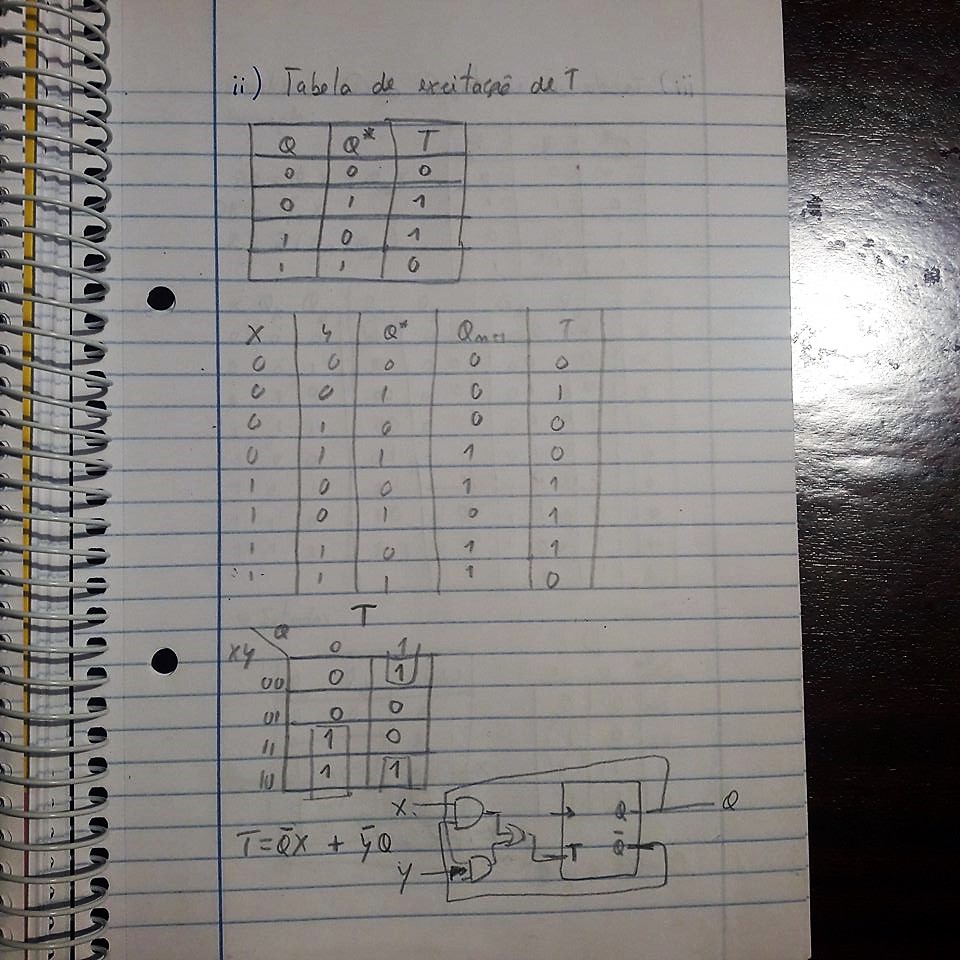 ii) Tabela de excitação de T
Q Q* T
0 0 0
0 1 1
1 0 1
1 1 0
X Y Q* Qn+1 T
0 0 0 0 0
0 0 1 0 1
0 1 0 0 0
0 1 1 1 0
1 0 0 1 1
1 0 1 0 1
1 1 0 1 1
1 1 1 1 0
T
Q
XY 0 1
00 0 1
01 0 0
11 1 0
10 1 1
X Q Q
T = Q̄X + ȳQ T Q̄
Y